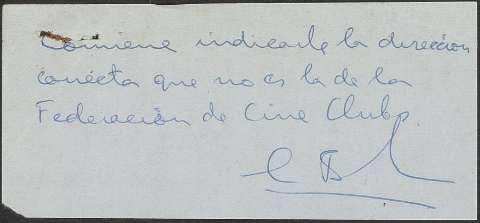 Conviene indicarle la dirección
correcta que no es la de la
Federación de Cine Clubs.